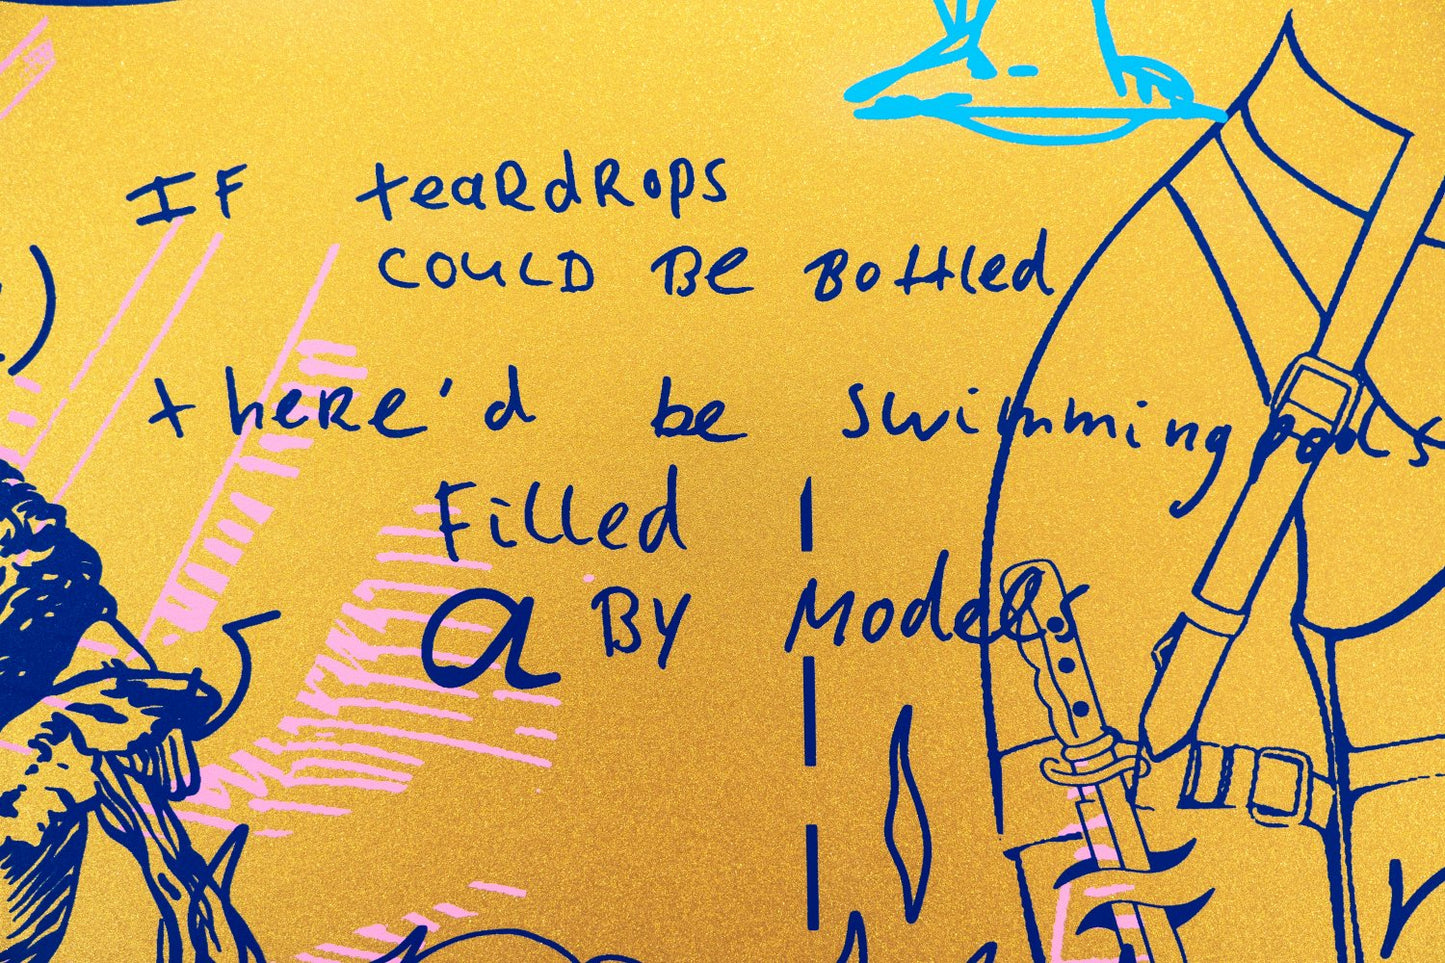 IF teaRdRops
COULD Be Bottled
theRe'd be swimming pools
Filled
a By Models